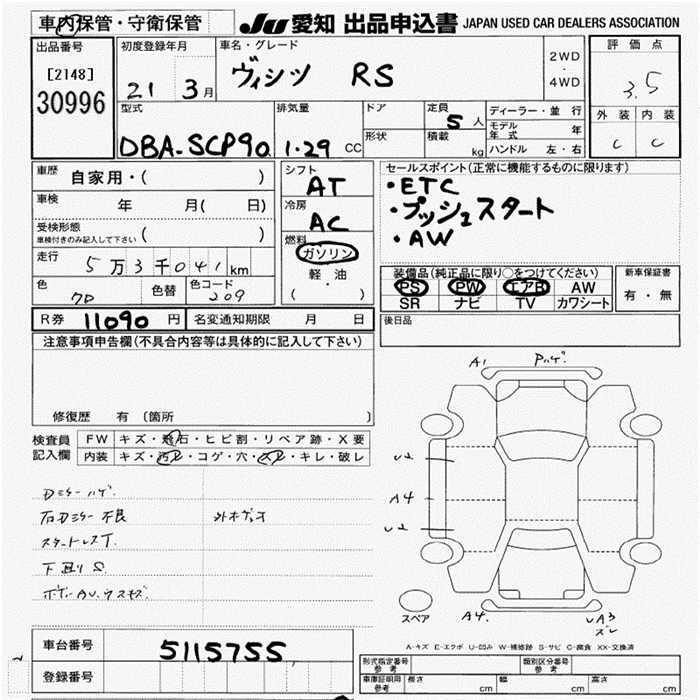 車内保管・守衛保管
JU 愛知 出品申込書 JAPAN USED CAR DEALERS ASSOCIATION
出品番号
[2148]
30996
初度登録年月
21 3月
車名・グレード
ヴィッツ RS
2WD
・
4WD
評価点
3.5
外装 内装
C C
型式
DBA-SCP90
排気量
1.29 CC
ドア
形状
定員
5 人
積載 kg
ディーラー・並行
モデル年式 年
ハンドル 左・右
車歴 自家用・( )
車検 年 月( 日)
受検形態
車検付きのみ記入して下さい ( )
走行 5万3千041km
色 色替 色コード
209
シフト
AT
冷房
AC
燃料
ガソリン
軽・油
( )
セールスポイント(正常に機能するものに限ります)
・ETC
・プッシュスタート
・AW
装備品(純正品に限り○をつけてください)
PS PW エアB AW
SR ナビ TV カワシート
新車保証書
有・無
R券 11090 円 名変通知期限 月 日
後日品
注意事項申告欄(不具合内容等は具体的に記入して下さい)
修復歴 有 〔箇所
検査員記入欄
FW キズ・飛石・ヒビ割・リペア跡・X要
内装 キズ・汚レ・コゲ・穴・スレ・キレ・破レ
Dミラーハゲ
右Dミラー不良
下廻りS
A1 Pハゲ
U2
A4
U2
A4 UA3
スレ
スペア
A-キズ E-エクボ U-凹み W-補修跡 S-サビ C-腐食 XX-交換済
車台番号 5115755
登録番号
形式指定番号 参考 類別区分番号 参考
車庫証明用 参考 長さ cm 幅 cm 高さ cm